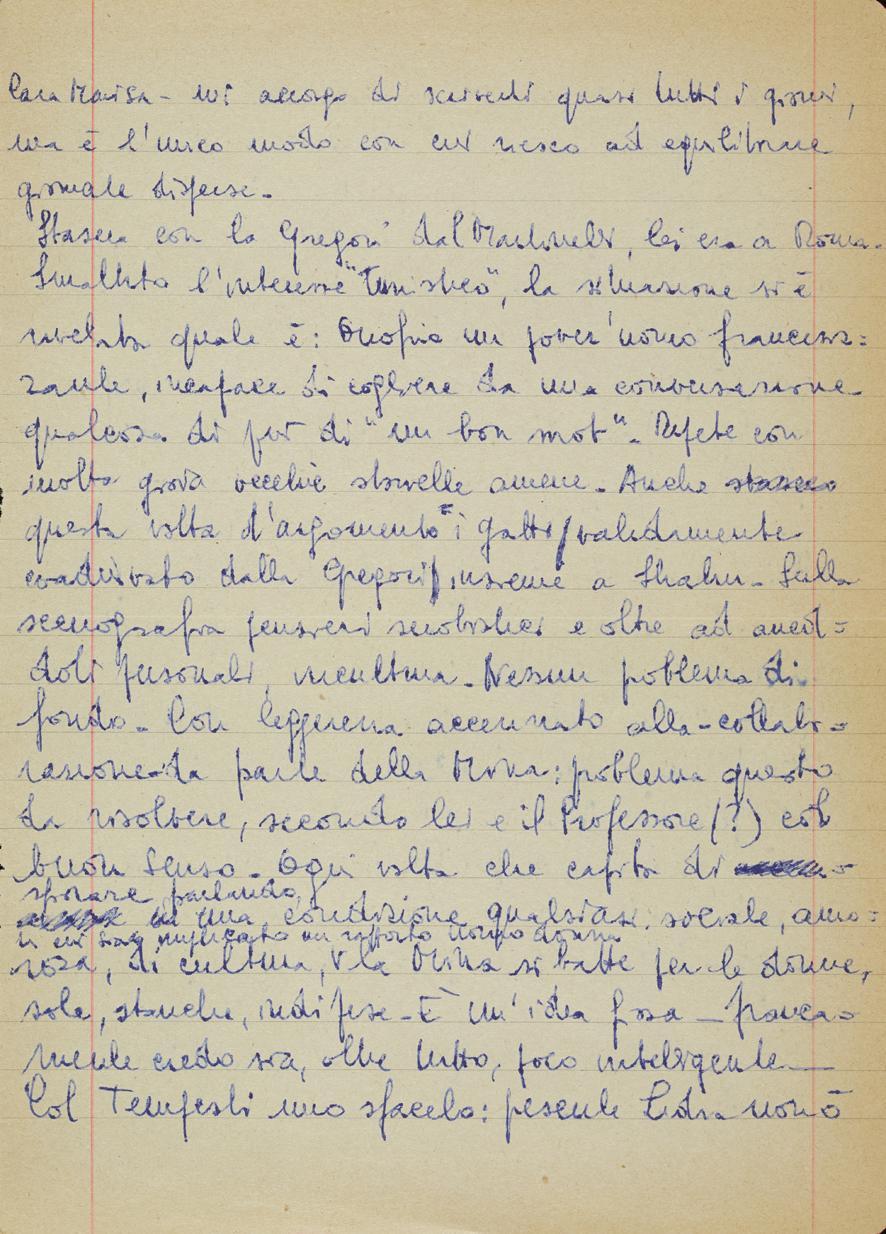 Cara Marisa - mi accorgo di scriverti quasi tutti i giorni,
ma è l'unico modo con cui riesco ad equilibrare
giornate disperse.
Stasera con la Gregori dal Martinelli, lei era a Roma.
Smaltito l'interesse "Turistico", la situazione si è
rivelata quale è: Onofrio un pover'uomo francesiz=
zante, incapace di cogliere da una conversazione
qualcosa di più di "un bon mot". Ripete con
molta gioia vecchie storielle amene. Anche stasera
questa volta d'argomento i gatti/validamente
coadiuvato dalla Gregori/, insieme a Sthalin. Sulla
scenografia pensieri snobistici e oltre ad aned=
doti personali, incultura. Nessun problema di
fondo. Con leggerezza accennato alla collabo=
razione da parte della Mina: problema questo
da risolvere, secondo lei e il Professore (?) col
buon senso. Ogni volta che capita di
sfiorare, parlando,
una condizione qualsiasi: sociale, amo=
in cui sia implicato un rapporto uomo donna
rosa, di cultura, la Mina si batte per le donne,
sole, stanche, indifese. È un'idea fissa — franca=
mente credo sia, oltre tutto, poco intelligente —
Col Tempesti uno sfacelo: presente Lidia non ò